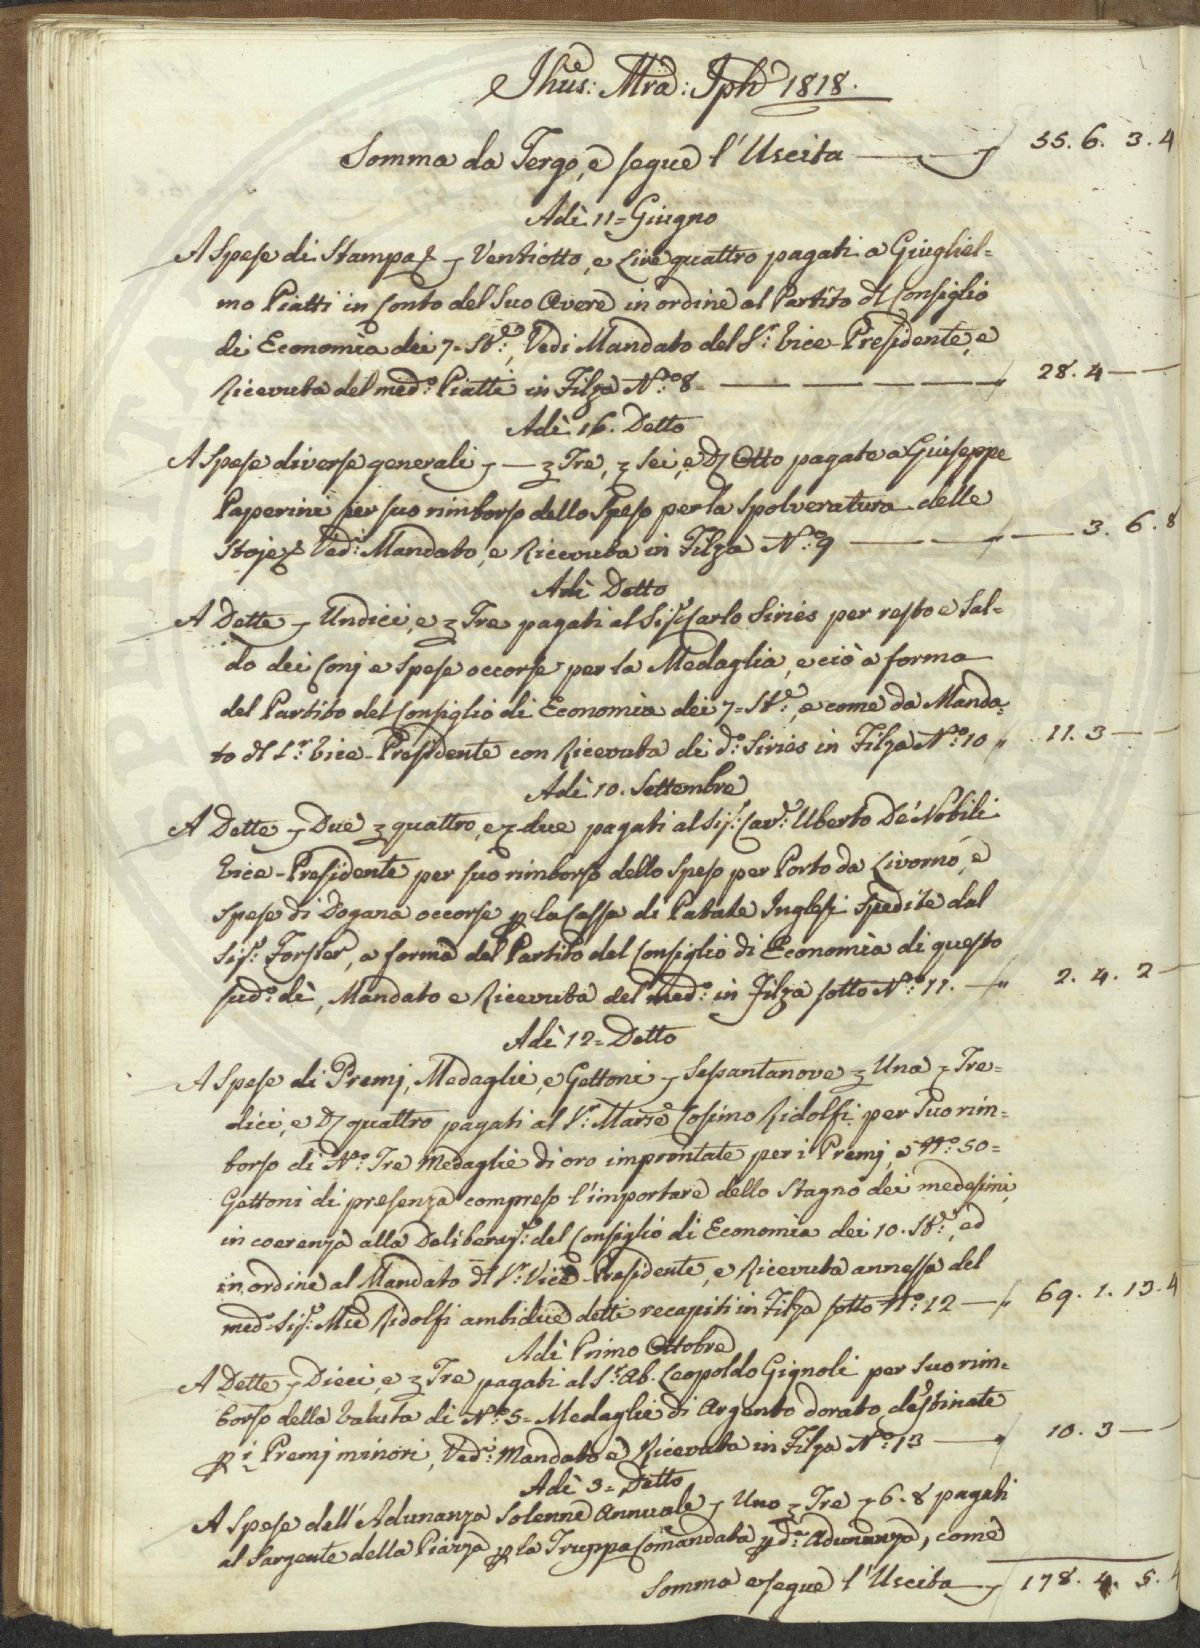 Jhũs: Mrã: Jpħ 1818.
Somma da Tergo, e segue l'Uscita 55. 6. 3. 4
Adì 11= Giugno
A Spese di Stampa Ventiotto, e Lire quattro pagati a Giugliel=
mo Piatti in Conto del Suo Avere in ordine al Partito dl Consiglio
di Economia dei 7= St.e; Vedi Mandato del S.r Vice-Presidente, e
Ricevuta del med.o Piatti in Filza N.o 8= 28. 4
Adì 16. Detto
A Spese diverse generali Tre, Sei, e Otto pagate a Giuseppe
Paperini per suo rimborso dello Speso per la Spolveratura delle
Stoje Ved: Mandato, e Ricevuta in Filza N.o 9 3. 6. 8
Adì Detto
A Dette Undici, e Tre pagati al Sig. Carlo Siries per resto e Sal=
do dei Conj e Spese occorse per la Medaglia, e ciò a forma
del Partito del Consiglio di Economia dei 7= St.e, e come da Manda=
to dl S.r Vice-Presidente con Ricevuta di d.o Siries in Filza N.o 10 11. 3
Adì 10. Settembre
A Dette Due quattro, e due pagati al Sig.r Cav.r Uberto De' Nobili
Vice-Presidente per suo rimborso dello Speso per Porto da Livorno, e
Spese di Dogana occorse p la Cassa di Patate Inglesi Spedite dal
Sig.r Forster, a forma del Partito del Consiglio di Economia di questo
sud.o dì, Mandato e Ricevuta del med.o in Filza sotto N.o 11. 2. 4. 2
Adì 12= Detto
A Spese di Premj, Medaglie, e Gettoni Sessantanove Una Tre=
dici, e quattro pagati al S.r Marse Cosimo Ridolfi per Suo rim=
borso di N.o Tre Medaglie di oro improntate per i Premj, e N.o 50=
Gettoni di presenza compreso l'importare dello Stagno dei medesimi,
in coerenza alla Deliberaz.e del Consiglio di Economia dei 10. St.e, ed
in ordine al Mandato dl S.r Vice-Presidente, e Ricevuta annessa del
med.o Sig.r Mse Ridolfi ambidue detti recapiti in Filza sotto N.o 12 69. 1. 13. 4
Adì Primo Ottobre
A Dette Dieci, e Tre pagati al S.r Ab. Leopoldo Gignoli per Suo rim=
borso della Valuta di N.o 5= Medaglie di Argento dorato destinate
p i Premj minori, Ved: Mandato e Ricevuta in Filza N.o 13 10. 3
Adì 3= Detto
A Spese dell'Adunanza Solenne Annuale Uno Tre 6. 8 pagati
al Sargente della Piazza p la Truppa Comandata p d.a Adunanza, come
Somma e segue l'Uscita 178. 4. 5. 4